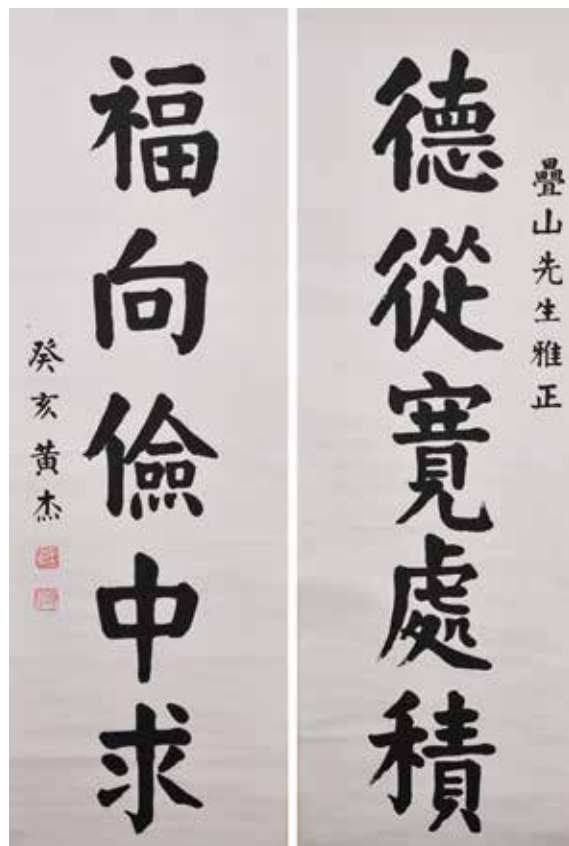 疊山先生雅正
德從寬處積
福向儉中求
癸亥黃杰